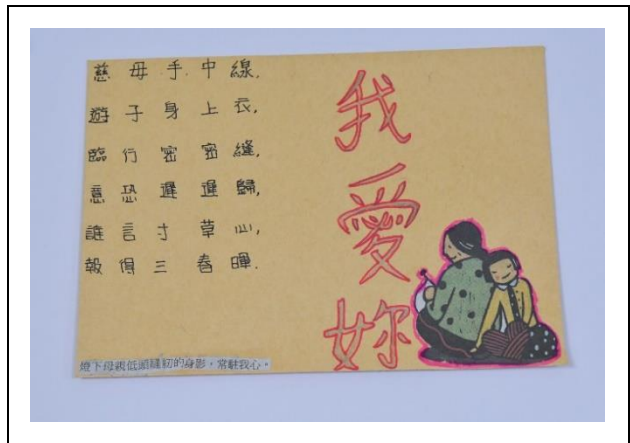 慈母手中線,
遊子身上衣,
臨行密密縫,
意恐遲遲歸,
誰言寸草心,
報得三春暉.
我愛妳
燈下母親低頭縫紉的身影，常駐我心。